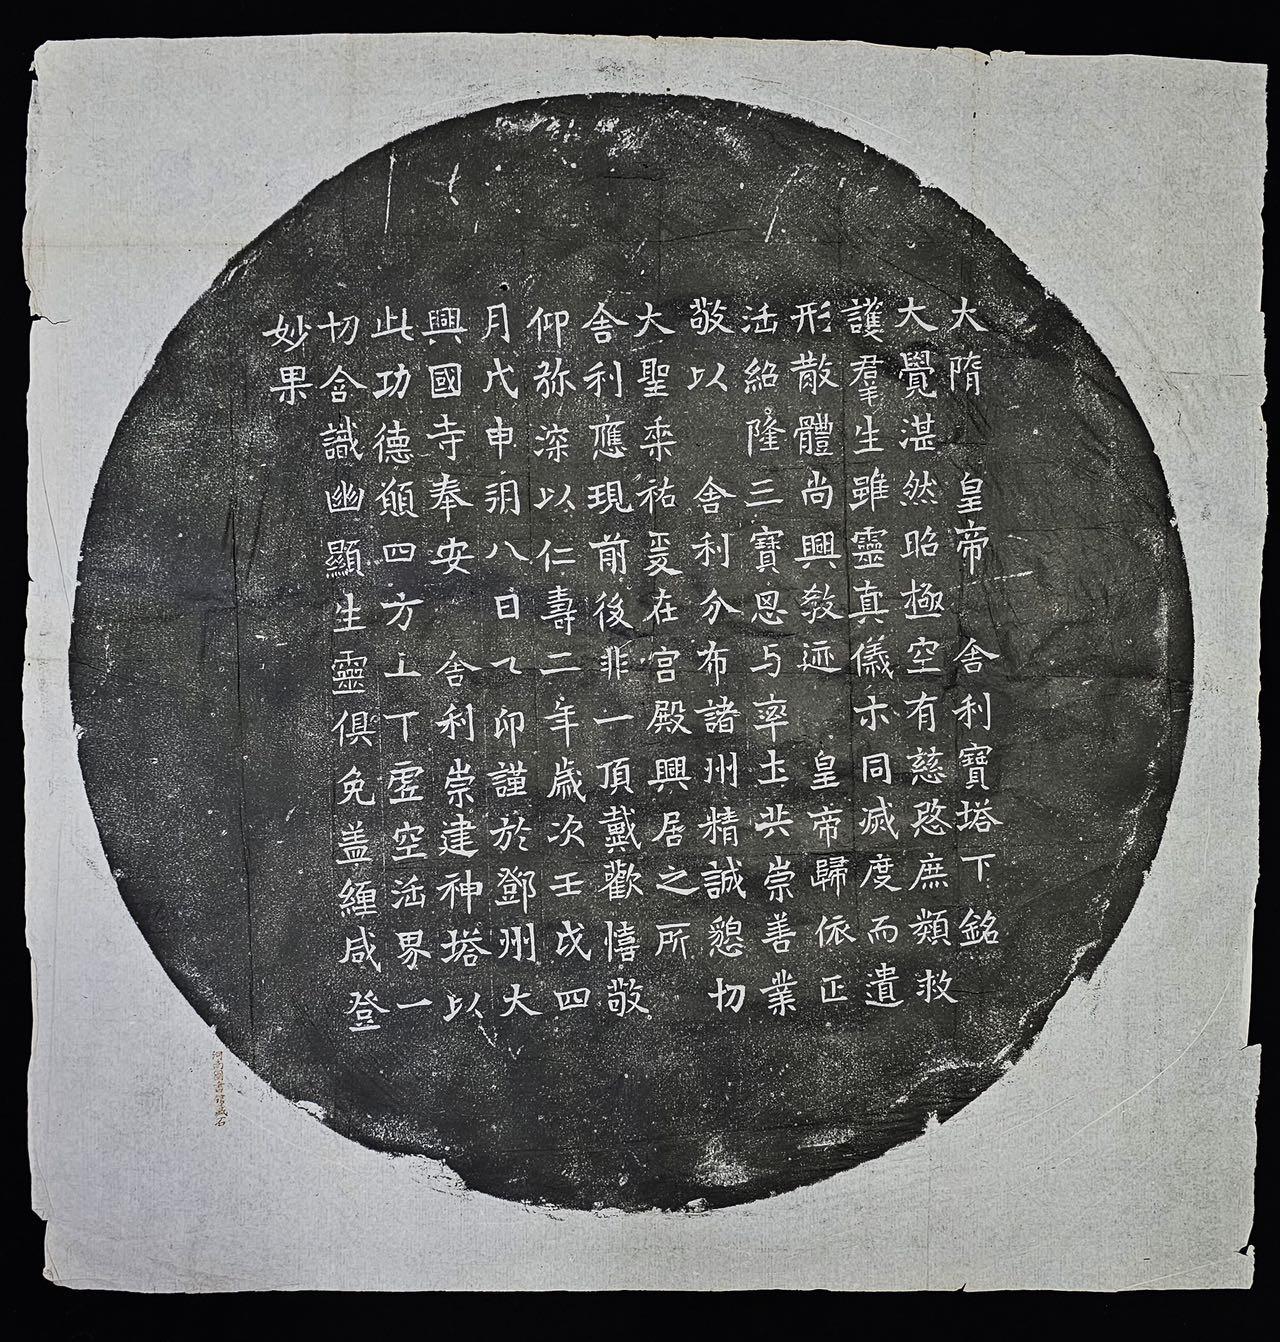 大隋皇帝舍利寶塔下銘
大覺湛然昭極空有慈愍庶類救
護羣生雖靈真儀示同滅度而遺
形散體尚興教迹皇帝歸依正
法紹隆三寶思与率土共崇善業
敬以舍利分布諸州精誠懇切
大聖垂祐爰在宮殿興居之所
舍利應現前後非一頂戴歡憘敬
仰弥深以仁壽二年歲次壬戌四
月戊申朔八日乙卯謹於鄧州大
興國寺奉安舍利崇建神塔以
此功德願四方上下虛空法界一
切含識幽顯生靈俱免盖纏咸登
妙果
河南圖書館藏石